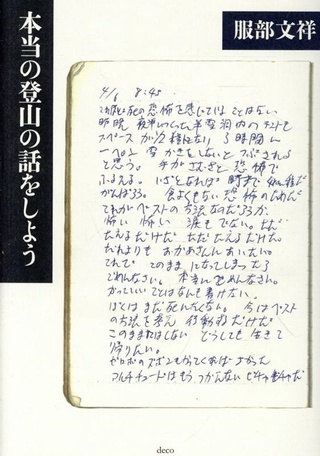 服部文祥
本当の登山の話をしよう
4/6 8:45
死の恐怖を感じ ことはない
昨晩 夜半につくった半雪洞内のテントも
スペースが1/2程になり 3時間に
一ペン 雪かきをしないと つぶされる
と思う。 手がさむさと 恐怖で
ふるえる。 いざとなれば
がんばろう。 恐怖のためだ
これがベストの方法なのだろうか
怖い 怖い 涙もでない。ただ
たえるだけだ ただたえるだけだ。
だれよりも おかあさんにあいたい。
これで このままになってしまったら
ごめんなさい。 本当にごめんなさい。
かっこいいことはなんも書けない。
ぼくはまだ死にたくない。 今はベスト
の方法を考え 行動するだけだ
このまま しない どうしても 生きて
帰りたい。
のズボンもってくれば よかった
はもう つかんない ビチャビチャだ
deco